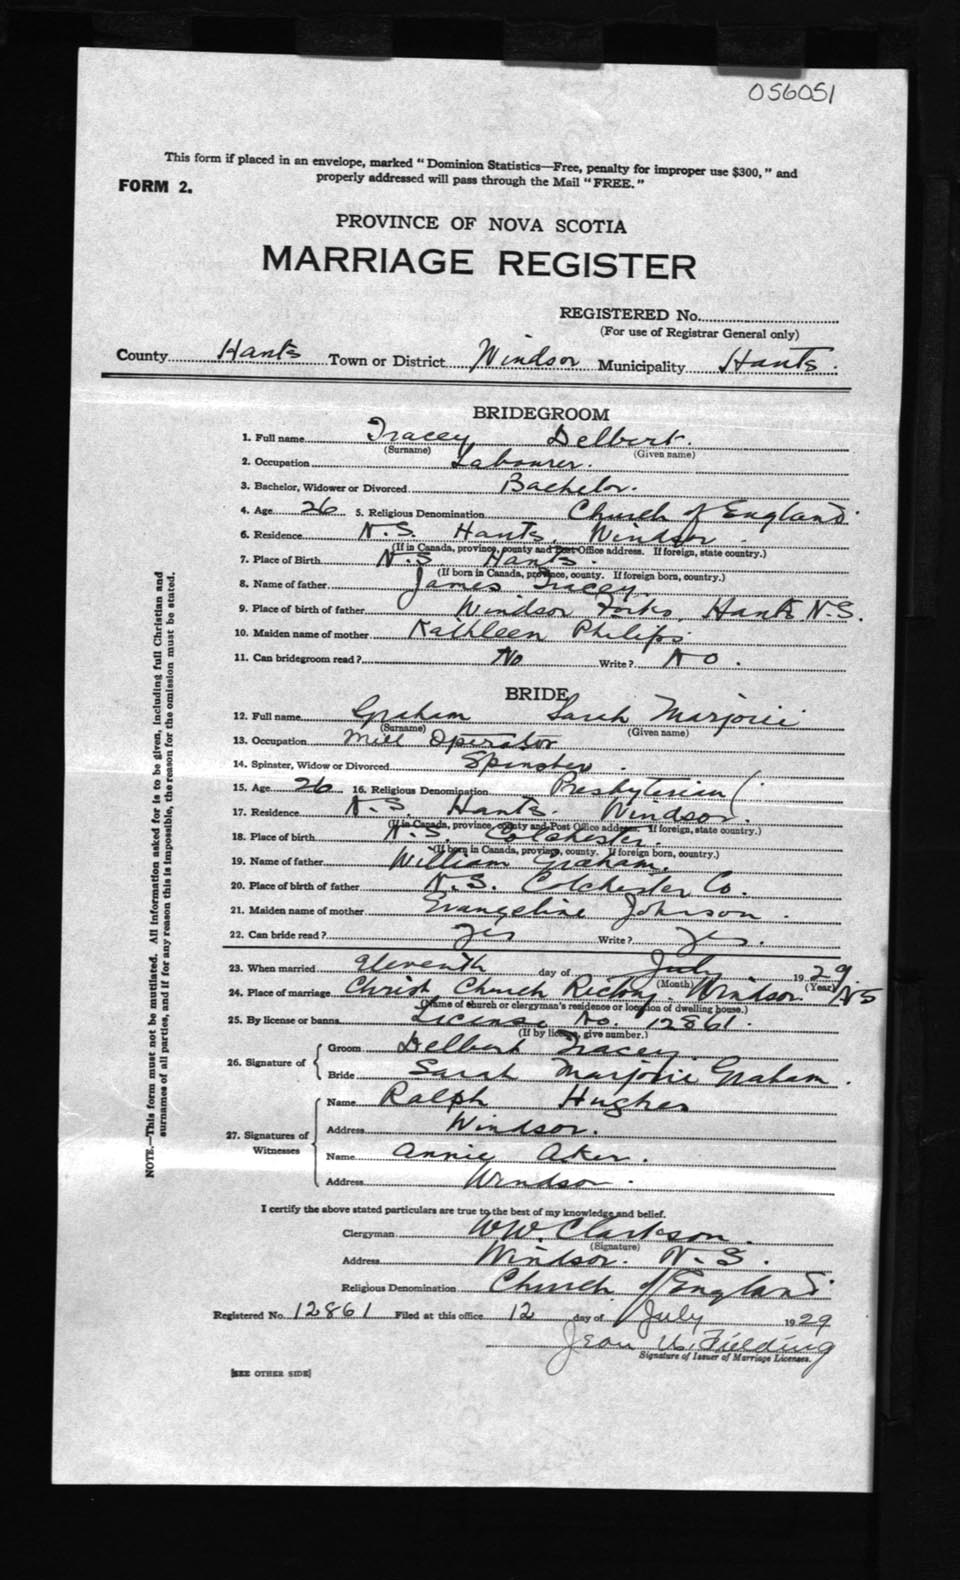 056051
This form if placed in an envelope, marked "Dominion Statistics—Free, penalty for improper use $300," and
properly addressed will pass through the Mail "FREE."
FORM 2.
PROVINCE OF NOVA SCOTIA
MARRIAGE REGISTER
REGISTERED No.
(For use of Registrar General only)
County Hants Town or District Windsor Municipality Hants.
BRIDEGROOM
1. Full name Tracey Delbert.
(Surname) (Given name)
2. Occupation Labourer.
3. Bachelor, Widower or Divorced Bachelor.
4. Age 26 5. Religious Denomination Church of England.
6. Residence N.S. Hants. Windsor.
(If in Canada, province, county and Post Office address. If foreign, state country.)
7. Place of Birth N.S. Hants.
(If born in Canada, province, county. If foreign born, country.)
8. Name of father James Tracey.
9. Place of birth of father Windsor Forks, Hants N.S.
10. Maiden name of mother Kathleen Philips.
11. Can bridegroom read? No Write? No.
BRIDE
12. Full name Graham Sarah Marjorie
(Surname) (Given name)
13. Occupation Mill Operator
14. Spinster, Widow or Divorced Spinster.
15. Age 26 16. Religious Denomination Presbyterian
17. Residence N.S. Hants Windsor.
(If in Canada, province, county and Post Office address. If foreign, state country.)
18. Place of birth N.S. Colchester.
(If born in Canada, province, county. If foreign born, country.)
19. Name of father William Graham.
20. Place of birth of father N.S. Colchester Co.
21. Maiden name of mother Evangeline Johnson.
22. Can bride read? Yes Write? Yes.
23. When married Eleventh day of July 1929
(Month) (Year)
24. Place of marriage Christ Church Rectory. Windsor NS
(Name of church or clergyman's residence or location of dwelling house.)
25. By license or banns License No. 12861.
(If by license, give number.)
26. Signature of
Groom Delbert Tracey.
Bride Sarah Marjorie Graham.
27. Signatures of Witnesses
Name Ralph Hughes
Address Windsor.
Name Annie Aker.
Address Windsor.
I certify the above stated particulars are true to the best of my knowledge and belief.
Clergyman W.W. Clarkson.
(Signature)
Address Windsor. N.S.
Religious Denomination Church of England.
Registered No. 12861 Filed at this office 12 day of July 1929
Jean U. Fielding
Signature of Issuer of Marriage Licenses.
[SEE OTHER SIDE]
NOTE.—This form must not be mutilated. All information asked for is to be given, including full Christian and
surnames of all parties, and if for any reason this is impossible, the reason for the omission must be stated.